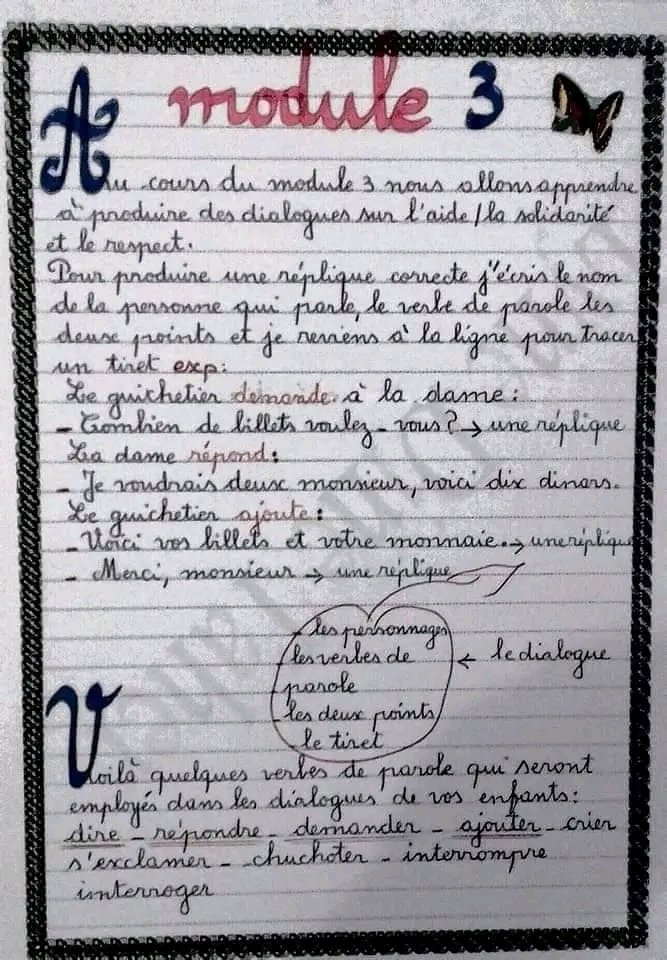 module 3
Au cours du module 3 nous allons apprendre
à produire des dialogues sur l'aide / la solidarité
et le respect.
Pour produire une réplique correcte j'écris le nom
de la personne qui parle, le verbe de parole les
deux points et je reviens à la ligne pour tracer
un tiret exp:
Le guichetier demande à la dame :
- Combien de billets voulez-vous ? → une réplique
La dame répond :
- Je voudrais deux monsieur, voici dix dinars.
Le guichetier ajoute :
- Voici vos billets et votre monnaie. → une réplique
- Merci, monsieur → une réplique
- les personnages
- les verbes de
parole
- les deux points
- le tiret
← le dialogue
Voilà quelques verbes de parole qui seront
employés dans les dialogues de vos enfants :
dire - répondre - demander - ajouter - crier
s'exclamer - chuchoter - interrompre
interroger